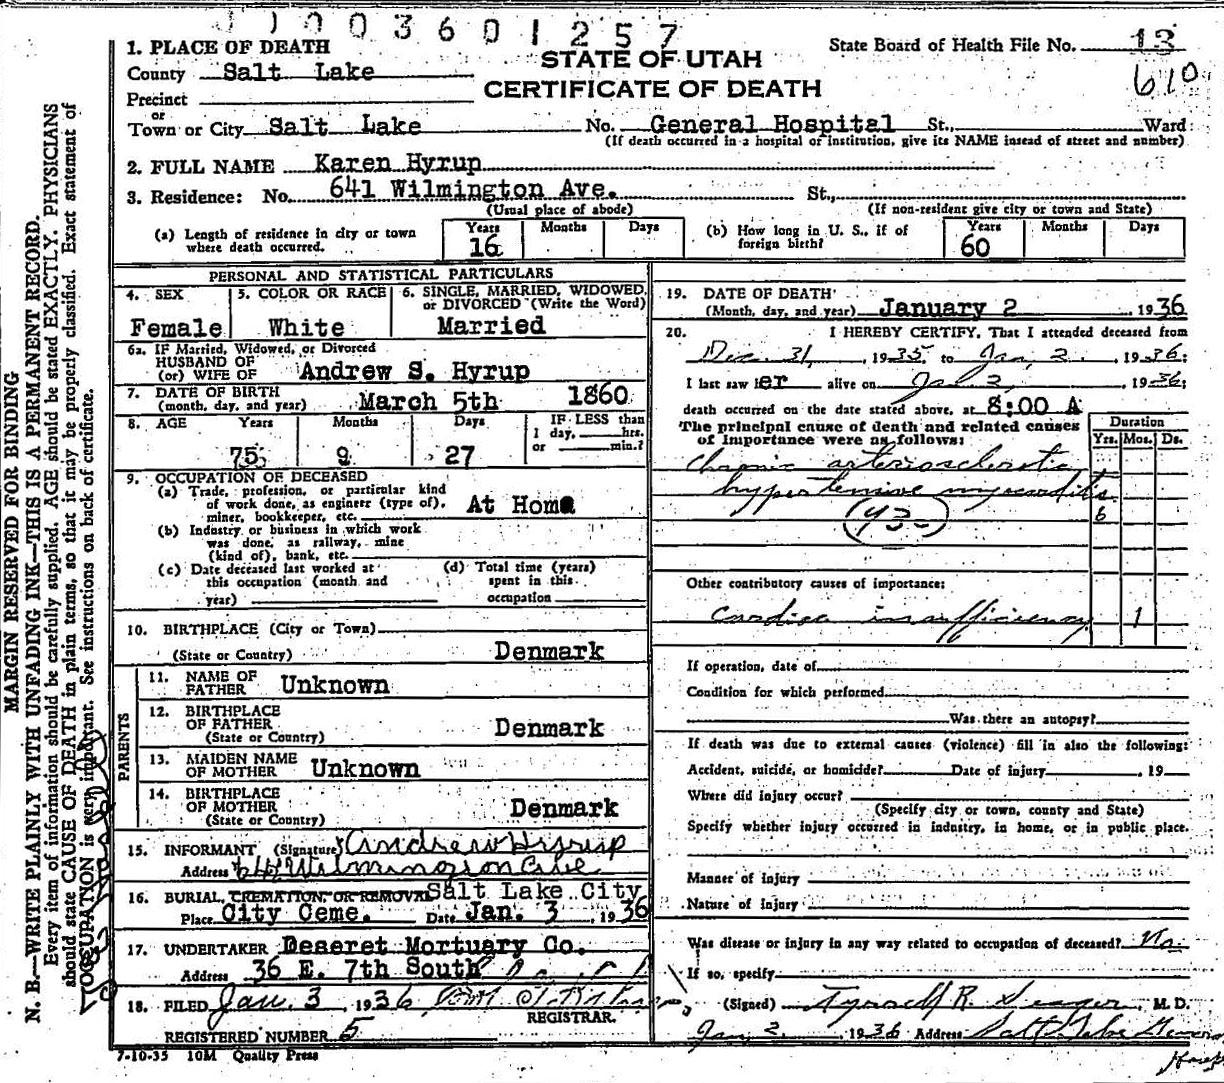 1003601257
1. PLACE OF DEATH
STATE OF UTAH
CERTIFICATE OF DEATH
State Board of Health File No. 13
610
County Salt Lake
Precinct
or
Town or City Salt Lake No. General Hospital St., Ward
(If death occurred in a hospital or institution, give its NAME instead of street and number)
2. FULL NAME Karen Hyrup
3. Residence: No. 641 Wilmington Ave. St.,
(Usual place of abode) (If non-resident give city or town and State)
(a) Length of residence in city or town where death occurred. Years 16 Months Days
(b) How long in U. S., if of foreign birth? Years 60 Months Days
PERSONAL AND STATISTICAL PARTICULARS
4. SEX Female
5. COLOR OR RACE White
6. SINGLE, MARRIED, WIDOWED, or DIVORCED (Write the Word) Married
6a. IF Married, Widowed, or Divorced
HUSBAND OF
(or) WIFE OF Andrew S. Hyrup
7. DATE OF BIRTH
(month, day, and year) March 5th 1860
8. AGE Years Months Days IF LESS than
1 day, hrs.
or min.?
75 9 27
9. OCCUPATION OF DECEASED
(a) Trade, profession, or particular kind
of work done, as engineer (type of),
miner, bookkeeper, etc. At Home
(b) Industry or business in which work
was done, as railway, mine
(kind of), bank, etc.
(c) Date deceased last worked at
this occupation (month and
year)
(d) Total time (years)
spent in this
occupation
10. BIRTHPLACE (City or Town)
(State or Country) Denmark
PARENTS
11. NAME OF
FATHER Unknown
12. BIRTHPLACE
OF FATHER
(State or Country) Denmark
13. MAIDEN NAME
OF MOTHER Unknown
14. BIRTHPLACE
OF MOTHER
(State or Country) Denmark
15. INFORMANT (Signature) Andrew Hyrup
Address 641 Wilmington Ave
16. BURIAL, CREMATION, OR REMOVAL Salt Lake City
Place City Ceme. Date Jan. 3, 1936
17. UNDERTAKER Deseret Mortuary Co.
Address 36 E. 7th South
18. FILED Jan. 3, 1936
REGISTRAR.
REGISTERED NUMBER 5
7-10-35 10M Quality Press
19. DATE OF DEATH
(Month, day, and year) January 2, 1936
20. I HEREBY CERTIFY, That I attended deceased from
Dec. 31, 1935 to Jan. 2, 1936;
I last saw her alive on Jan 2, 1936;
death occurred on the date stated above, at 8:00 A
The principal cause of death and related causes
of importance were as follows:
Duration
Yrs. Mos. Ds.
Chronic arteriosclerotic
hypertensive myocarditis
6
(93-)
Other contributory causes of importance:
Cardiac insufficiency 1
If operation, date of
Condition for which performed
Was there an autopsy?
If death was due to external causes (violence) fill in also the following:
Accident, suicide, or homicide? Date of injury , 19
Where did injury occur?
(Specify city or town, county and State)
Specify whether injury occurred in industry, in home, or in public place.
Manner of injury
Nature of injury
Was disease or injury in any way related to occupation of deceased? No
If so, specify
(Signed) Tyrrell R. Seager, M. D.
Jan. 2, 1936 Address Salt Lake General
Hosp
MARGIN RESERVED FOR BINDING
N. B.—WRITE PLAINLY WITH UNFADING INK—THIS IS A PERMANENT RECORD.
Every item of information should be carefully supplied. AGE should be stated EXACTLY. PHYSICIANS
should state CAUSE OF DEATH in plain terms, so that it may be properly classified. Exact statement of
OCCUPATION is very important. See instructions on back of certificate.